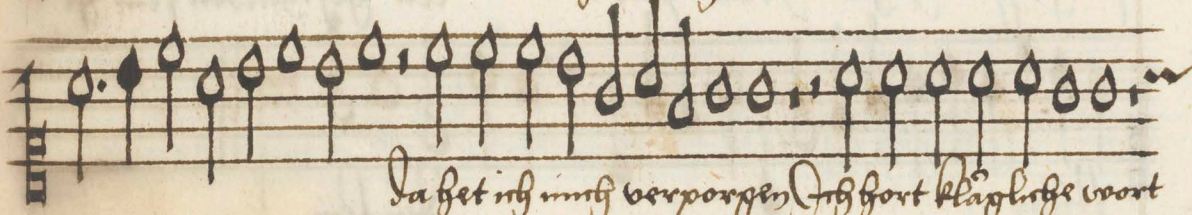 da het ich mich verporgen Ich hort klägliche wort